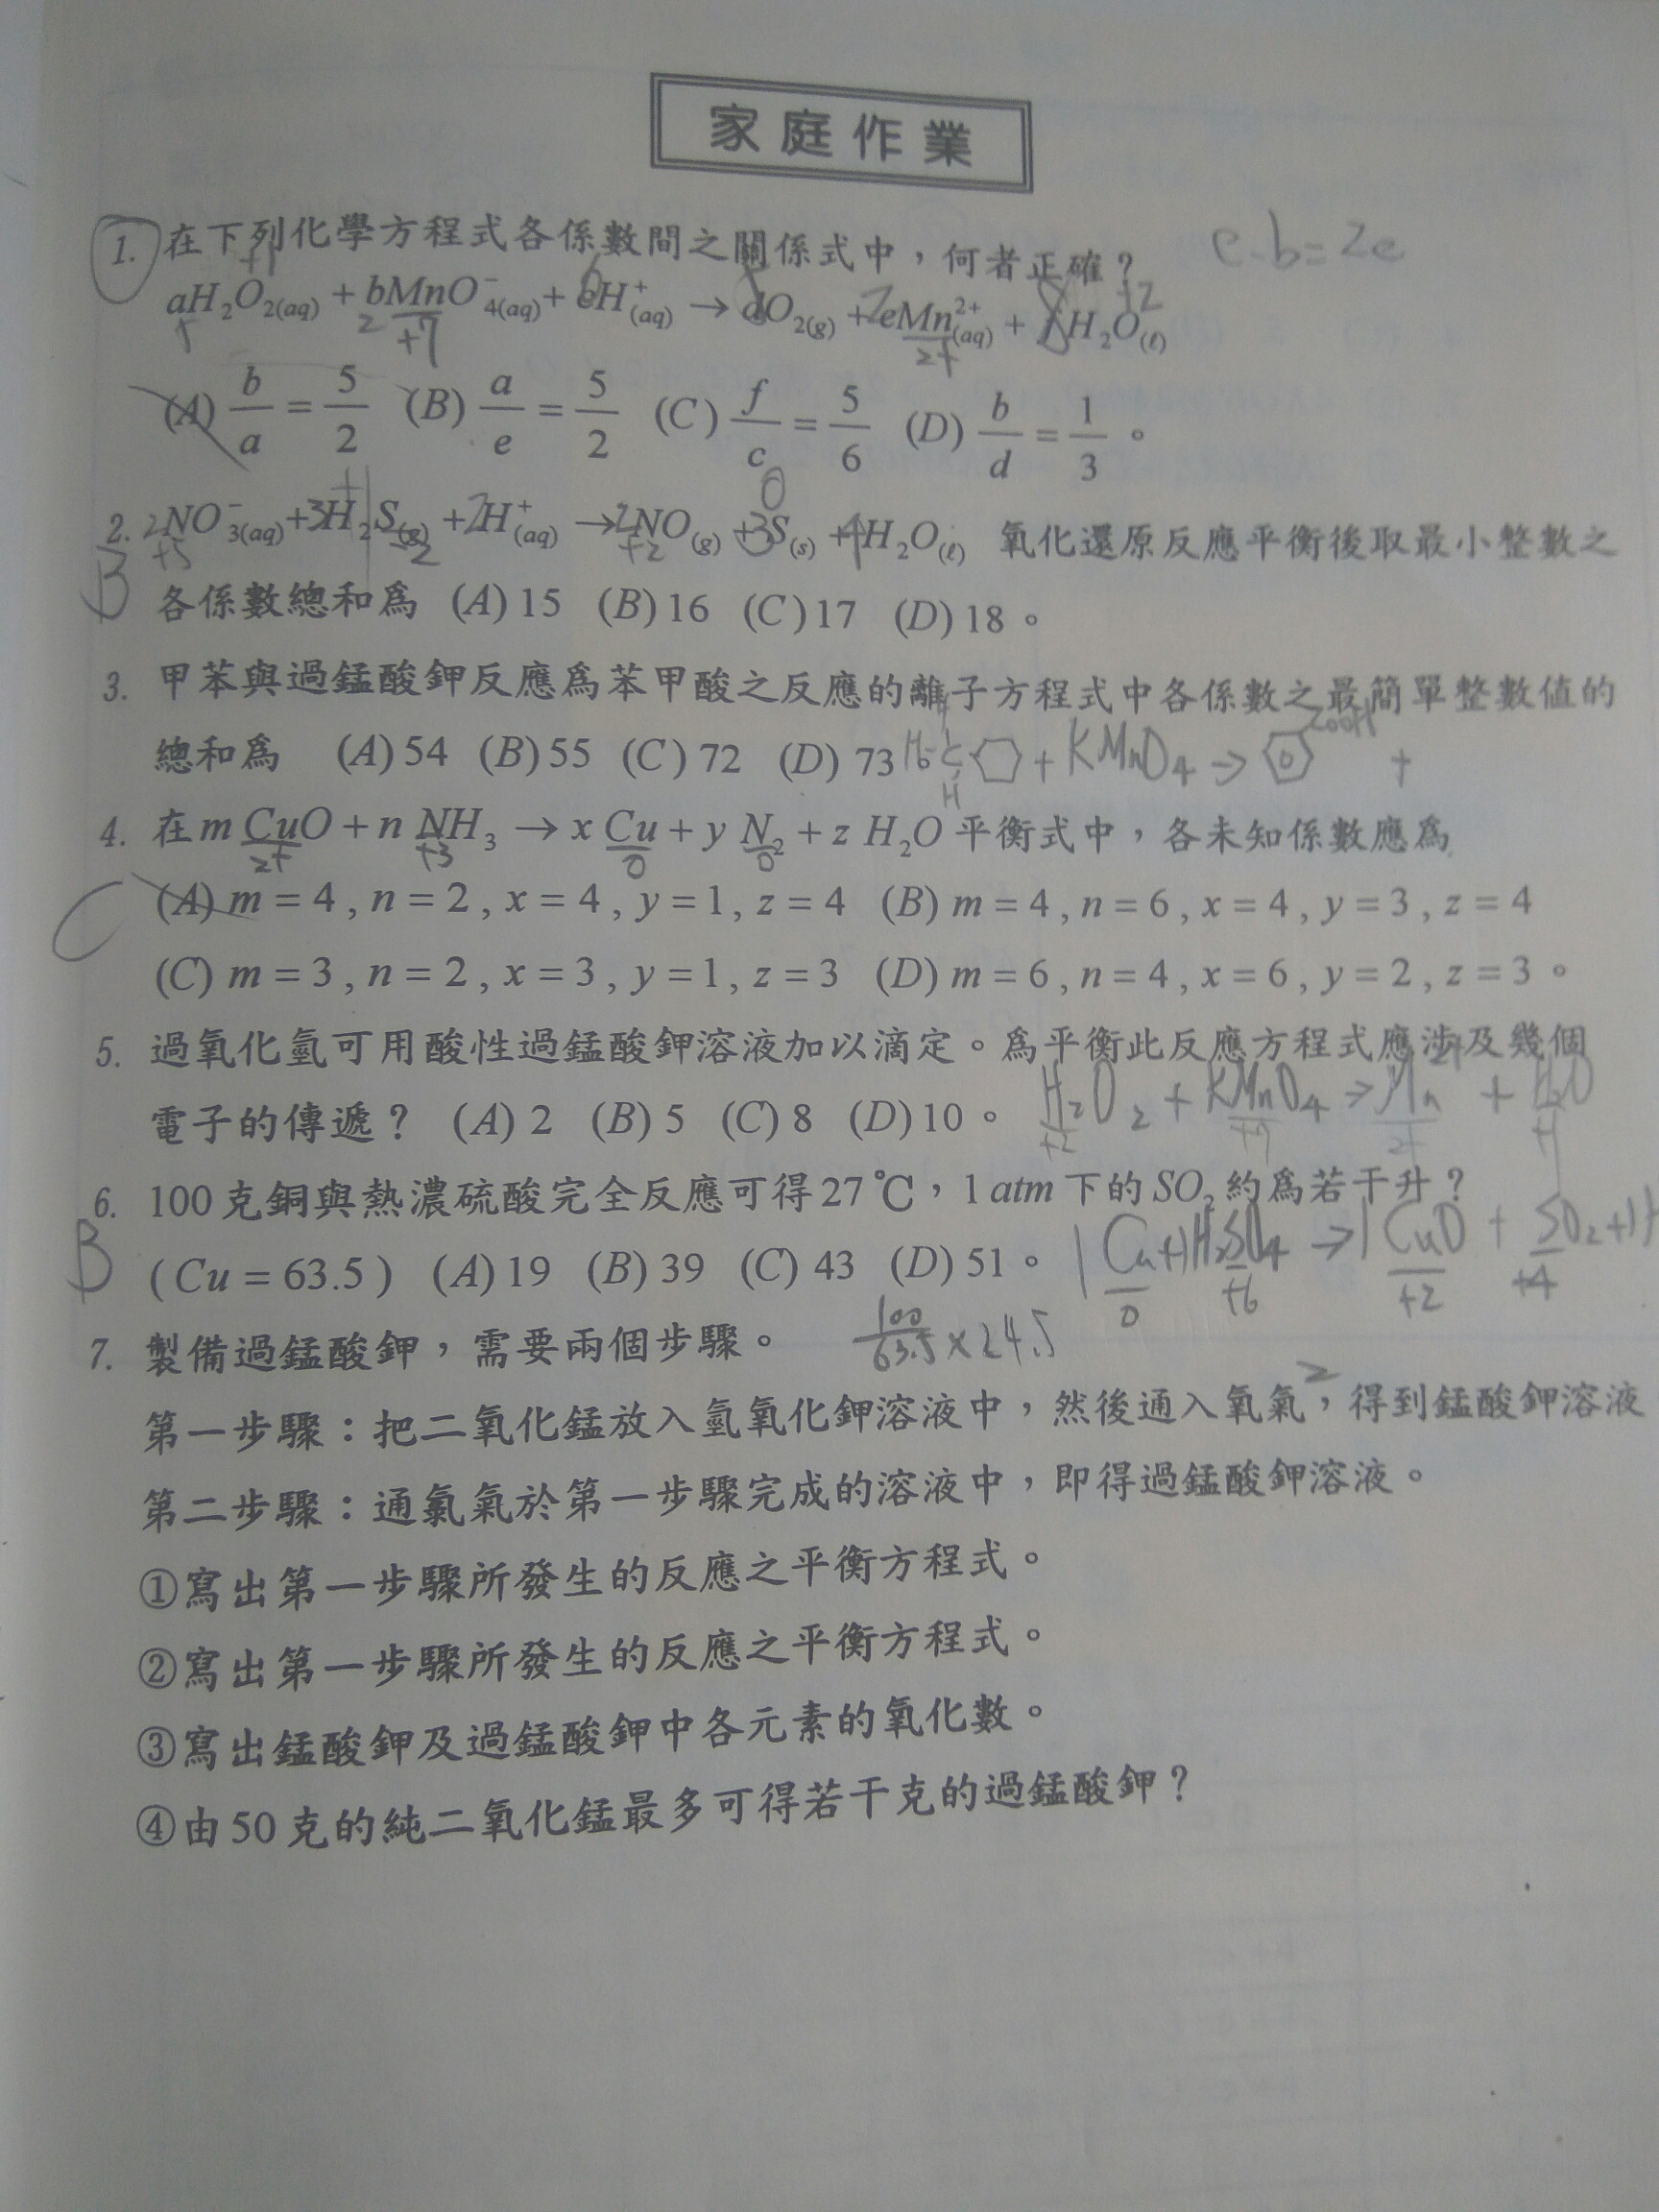 家庭作業
1. 在下列化學方程式各係數間之關係式中，何者正確？ e-b=2e
aH₂O₂(aq) + bMnO₄⁻(aq) + cH⁺(aq) → dO₂(g) + eMn²⁺(aq) + fH₂O(ℓ)
(A) b/a = 5/2 (B) a/e = 5/2 (C) f/c = 5/6 (D) b/d = 1/3 。
2. 2NO₃⁻(aq)+3H₂S(g) +2H⁺(aq) →2NO(g) +3S(s) +4H₂O(ℓ) 氧化還原反應平衡後取最小整數之
B 各係數總和為 (A) 15 (B) 16 (C) 17 (D) 18 。
3. 甲苯與過錳酸鉀反應爲苯甲酸之反應的離子方程式中各係數之最簡單整數值的
總和爲 (A) 54 (B) 55 (C) 72 (D) 73 + KMnO₄ → COOH +
4. 在 m CuO + n NH₃ → x Cu + y N₂ + z H₂O 平衡式中，各未知係數應爲
2+ +3 0 0
C (A) m = 4 , n = 2 , x = 4 , y = 1 , z = 4 (B) m = 4 , n = 6 , x = 4 , y = 3 , z = 4
(C) m = 3 , n = 2 , x = 3 , y = 1 , z = 3 (D) m = 6 , n = 4 , x = 6 , y = 2 , z = 3 。
5. 過氧化氫可用酸性過錳酸鉀溶液加以滴定。爲平衡此反應方程式應涉及幾個
電子的傳遞？ (A) 2 (B) 5 (C) 8 (D) 10 。 H₂O₂ + KMnO₄ → Mn²⁺ + H₂O
6. 100 克銅與熱濃硫酸完全反應可得 27 ℃，1 atm 下的 SO₂ 約爲若干升？
B ( Cu = 63.5 ) (A) 19 (B) 39 (C) 43 (D) 51 。 1 Cu+1H₂SO₄ → 1 CuO + SO₂+1H
0 +6 +2 +4
7. 製備過錳酸鉀，需要兩個步驟。 100/63.5 × 24.5
第一步驟：把二氧化錳放入氫氧化鉀溶液中，然後通入氧氣，得到錳酸鉀溶液
第二步驟：通氯氣於第一步驟完成的溶液中，即得過錳酸鉀溶液。
①寫出第一步驟所發生的反應之平衡方程式。
②寫出第一步驟所發生的反應之平衡方程式。
③寫出錳酸鉀及過錳酸鉀中各元素的氧化數。
④由 50 克的純二氧化錳最多可得若干克的過錳酸鉀？